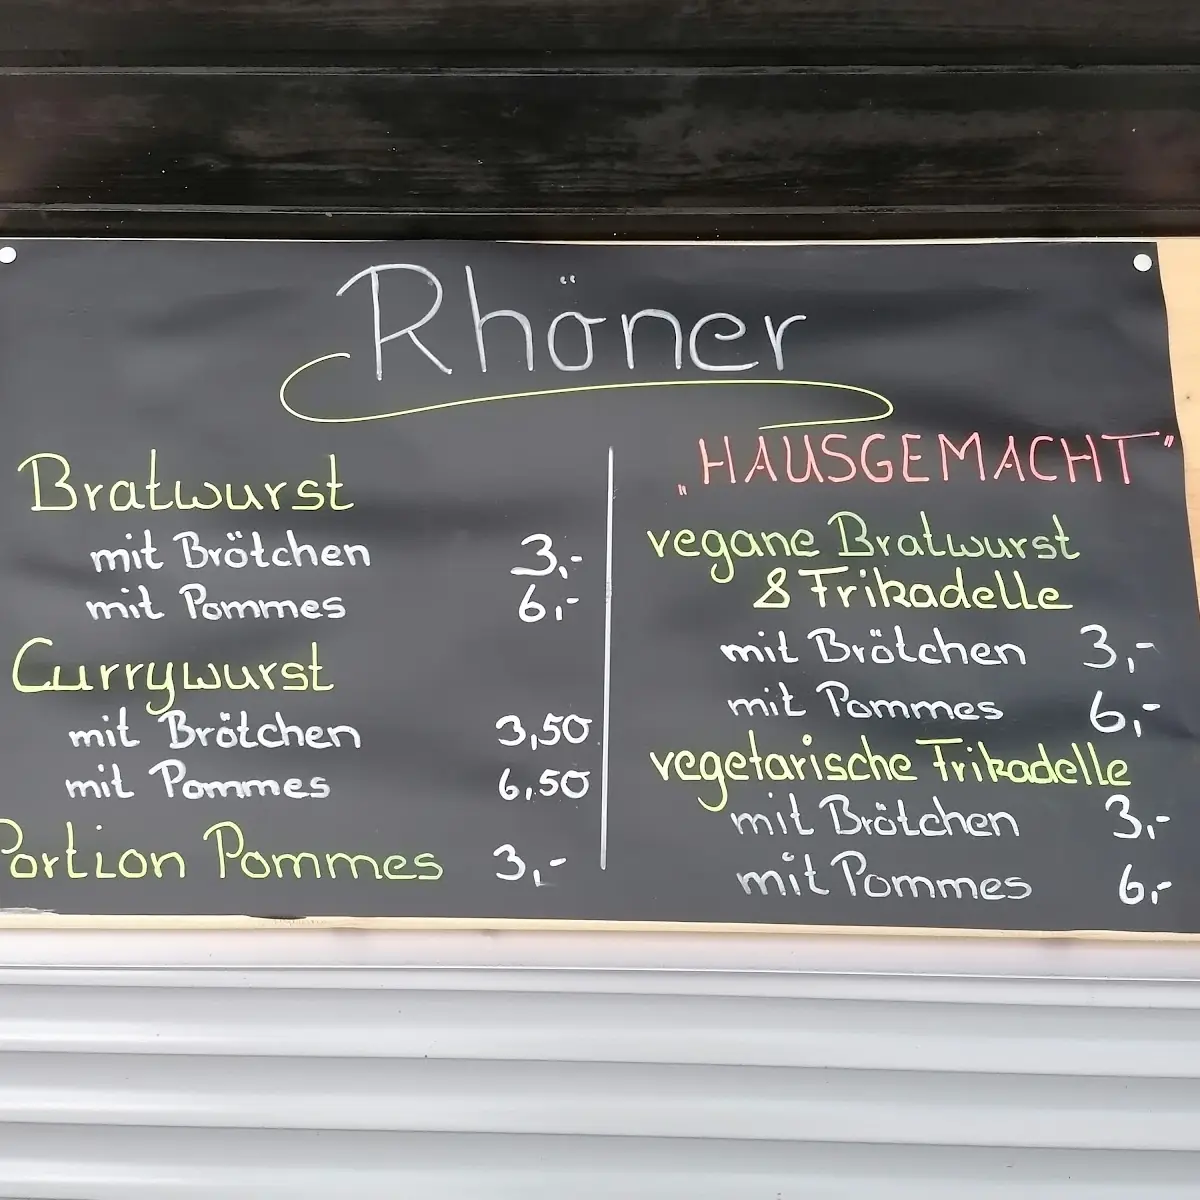 Rhöner
Bratwurst
mit Brötchen 3,-
mit Pommes 6,-
Currywurst
mit Brötchen 3,50
mit Pommes 6,50
Portion Pommes 3,-
„HAUSGEMACHT"
vegane Bratwurst
& Frikadelle
mit Brötchen 3,-
mit Pommes 6,-
vegetarische Frikadelle
mit Brötchen 3,-
mit Pommes 6,-